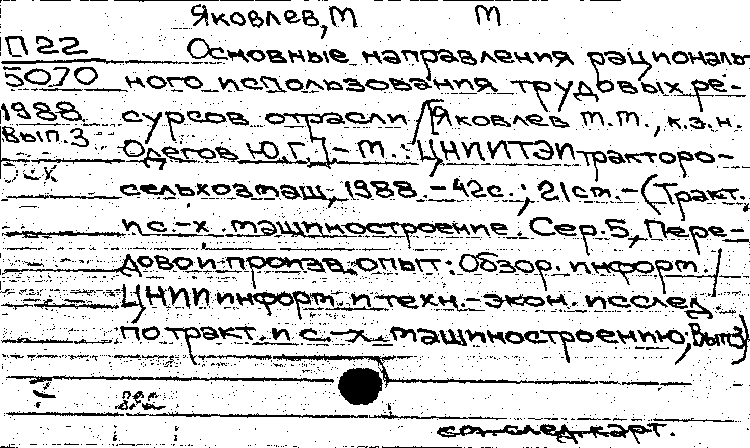 Яковлев, М М
П22 Основные направления рациональ-
5070 ного использования трудовых ре-
1988 сурсов отрасли / [Яковлев М.М., к.э.н.
Вып.3 Одегов Ю.Г.] - М.: ЦНИИТЭИтракторо-
сельхозмаш, 1988. - 42с.; 21см. - (Тракт.
и с.-х. машиностроение. Сер.5, Пере-
довой произв. опыт: Обзор. информ. /
ЦНИИ информ. и техн.-экон. исслед.
по тракт. и с.-х. машиностроению; Вып.3)
см. след. карт.